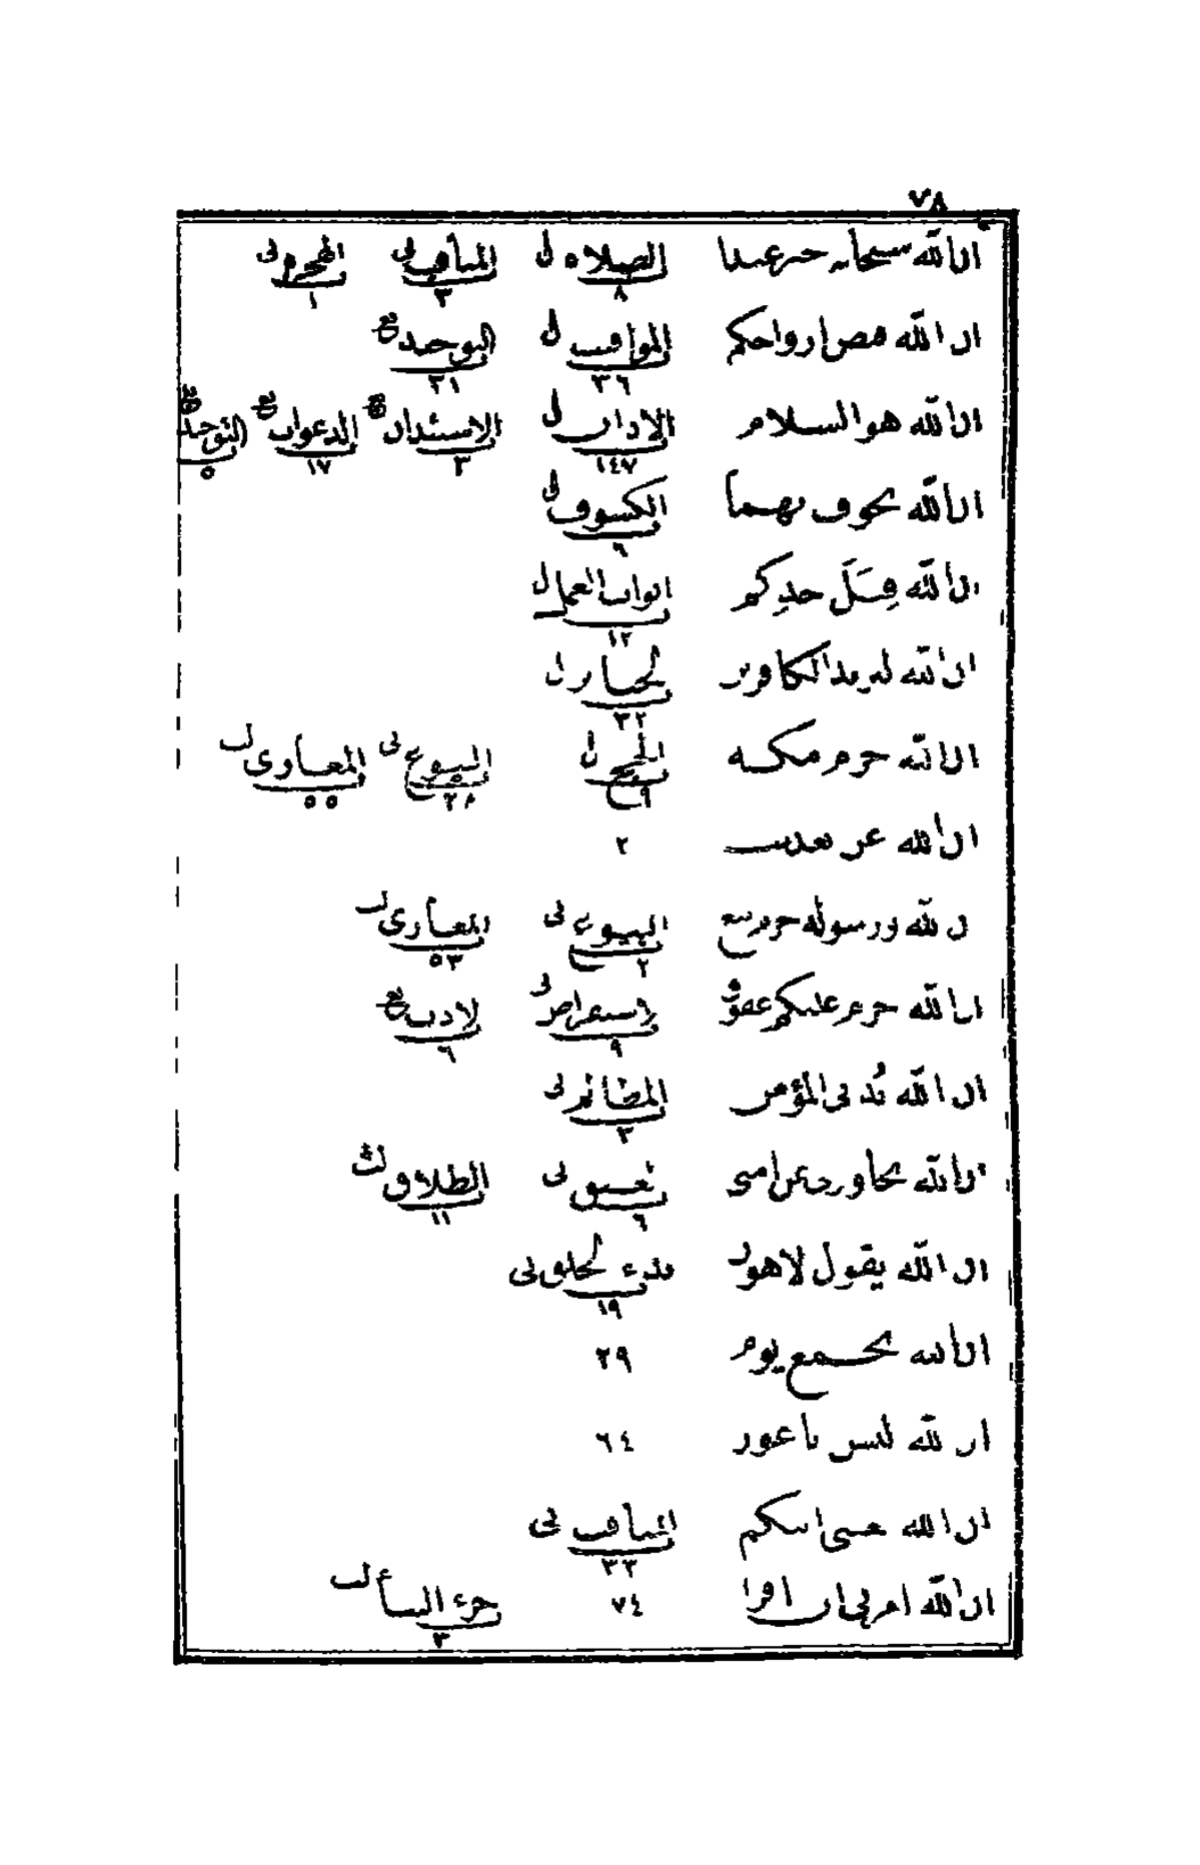 ٧٨
ان الله سبحانه خير عبدا الصلاه لى ٨ المناقب لى ٣ الهجره لى ١
ان الله قبض ارواحكم المواقيت ل ٣٦ التوحيد مع ٢١
ان الله هو السلام الاذان ل ١٤٧ الاستئذان مع ٣ الدعوات مع ١٧ التوحيد مع ٥
ان الله يخوف بهما الكسوف لى ٦
ان الله قِبَلَ احدكم ابواب العمل ل ١٢
ان الله ليزيد الكافرين الجنايز ل ٣٢
ان الله حرم مكة الحج ل ٩ البيوع لى ٢٨ المغازى ل ٥٥
ان الله عن تعذيب ٢
ان الله ورسوله حرم بيع البيوع لى ٢ المغازى ل ٥٣
ان الله حرم عليكم عقوق الاستقراض لى ٩ الادب مع ٦
ان الله يُدنى المؤمن المظالم لى ٣
ان الله تجاوز عن امتى العتق لى ٦ الطلاق ث ١١
ان الله يقول لاهون بدء الخلق لى ١٩
ان الله يجمع يوم ٢٩
ان الله ليس باعور ٦٤
ان الله بعثنى اليكم المناقب لى ٣٣
ان الله امرنى ان اقرا ٧٤ جزء النسأ ل ٣